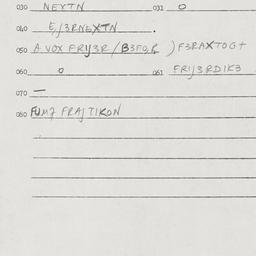 030 NEXTN 031 O
040 E,J3RNEXTN .
050 A VOX FRIJ3R / B3FOR ) F3RAXTOGT
060 O 061 FRIJ3RDIK3
070 —
080 FUM7 FRAJTIKON